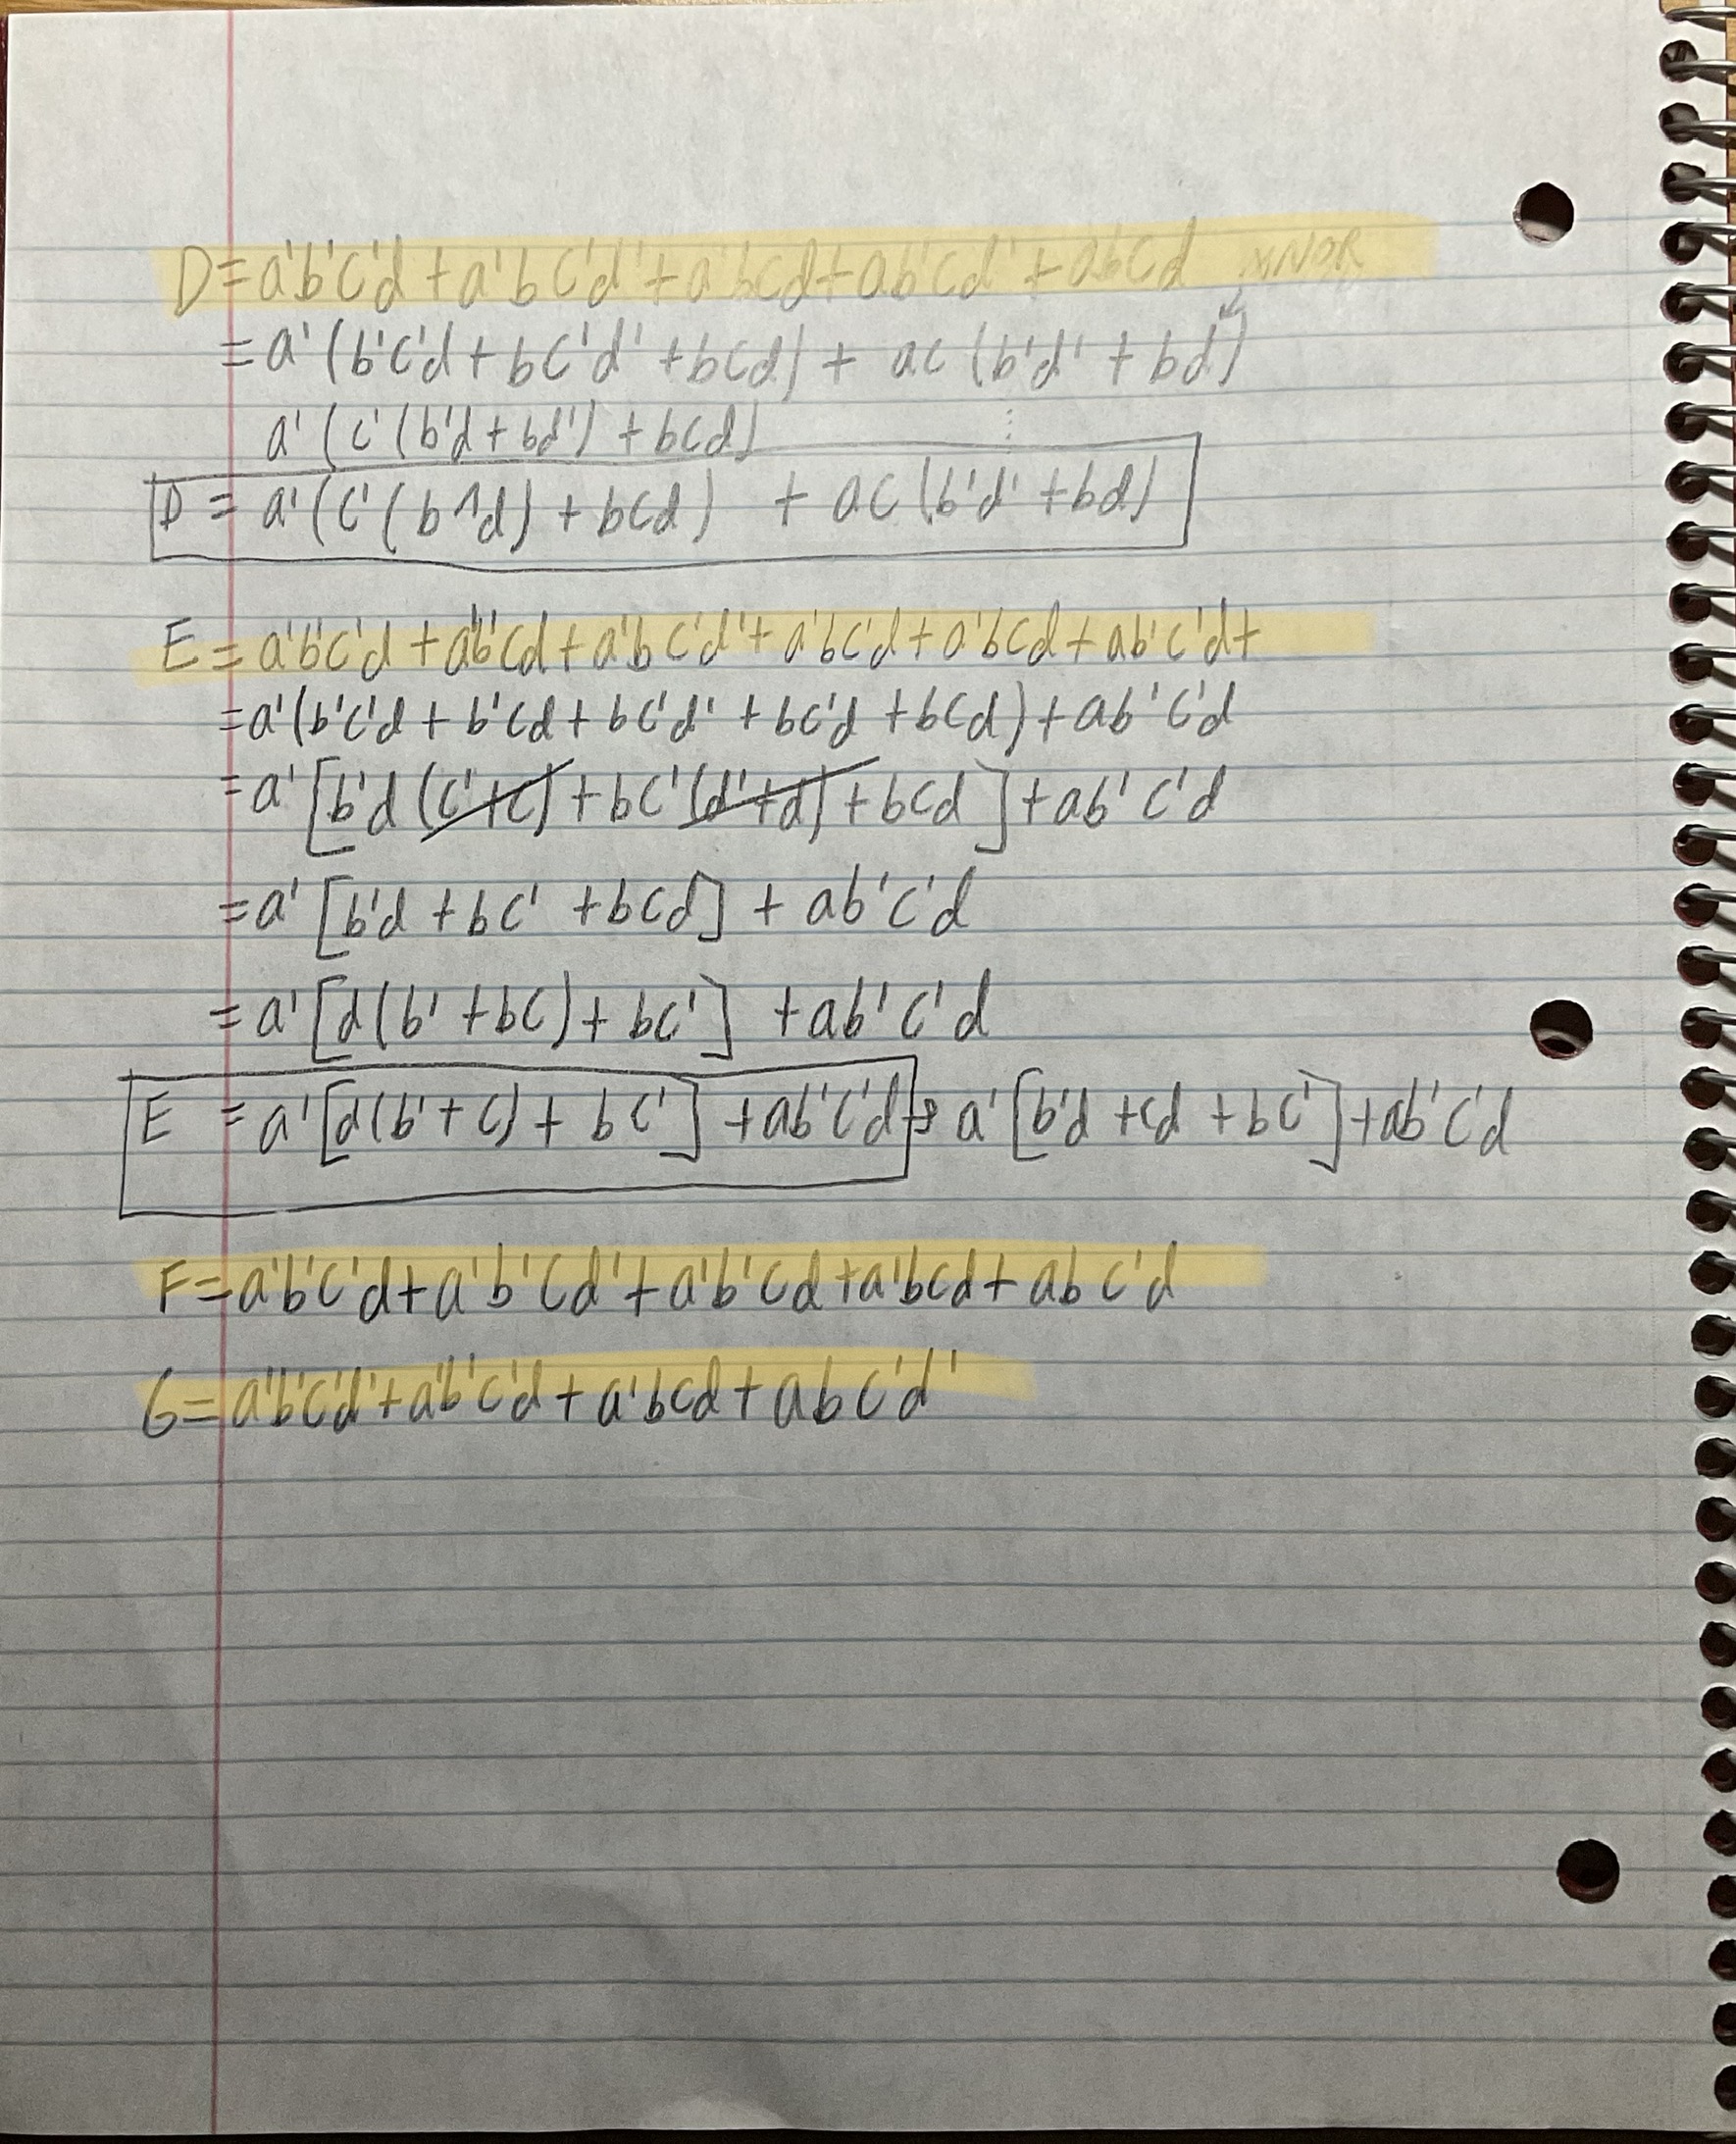 D=a'b'c'd+a'bc'd'+a'bcd+ab'cd'+abcd XNOR
=a'(b'c'd+bc'd'+bcd)+ ac(b'd'+bd)
a'(c'(b'd+bd')+bcd) ⋮
D = a'(c'(b^d)+bcd) + ac(b'd'+bd)
E=a'b'c'd+a'b'cd+a'bc'd'+a'bc'd+a'bcd+ab'c'd+
=a'(b'c'd+b'cd+bc'd'+bc'd+bcd)+ab'c'd
=a'[b'd(c'+c)+bc'(d'+d)+bcd]+ab'c'd
=a'[b'd+bc'+bcd]+ab'c'd
=a'[d(b'+bc)+bc']+ab'c'd
E =a'[d(b'+c)+bc']+ab'c'd → a'[b'd+cd+bc']+ab'c'd
F=a'b'c'd+a'b'cd'+a'b'cd+a'bcd+abc'd
G=a'b'c'd'+a'b'c'd+a'bcd+abc'd'